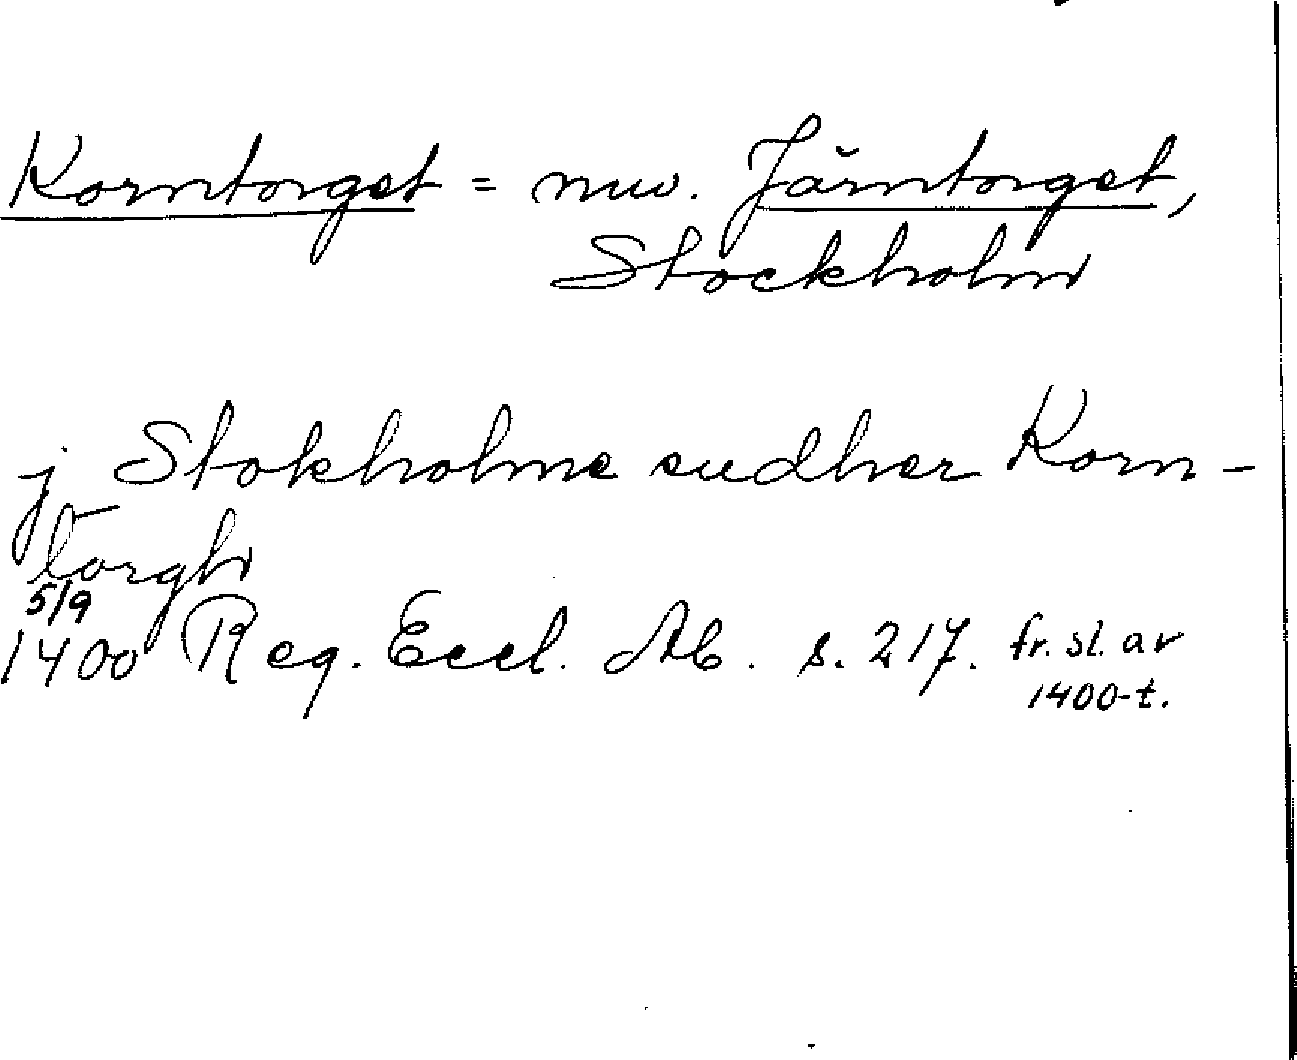 Korntorget = nuv. Järntorget,
Stockholm
j Stokholme sudher Korn-
torgh
5/9
1400 Reg. Eccl. Ab. s. 217. fr. sl. av
1400-t.